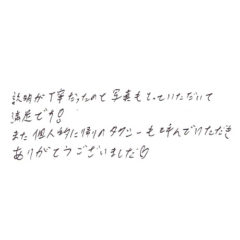 説明が丁寧だったので写真もとっていただいて
満足です!
また個人的に帰りのタクシーも呼んでいただき
ありがとうございました♡